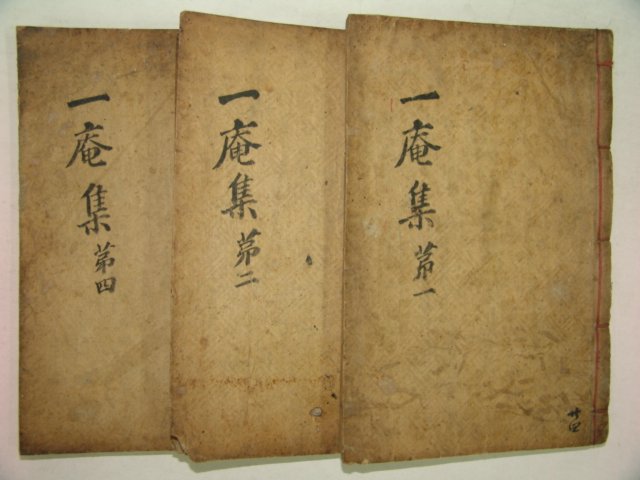 一庵集 第一
廿四
一庵集 第二
一庵集 第四